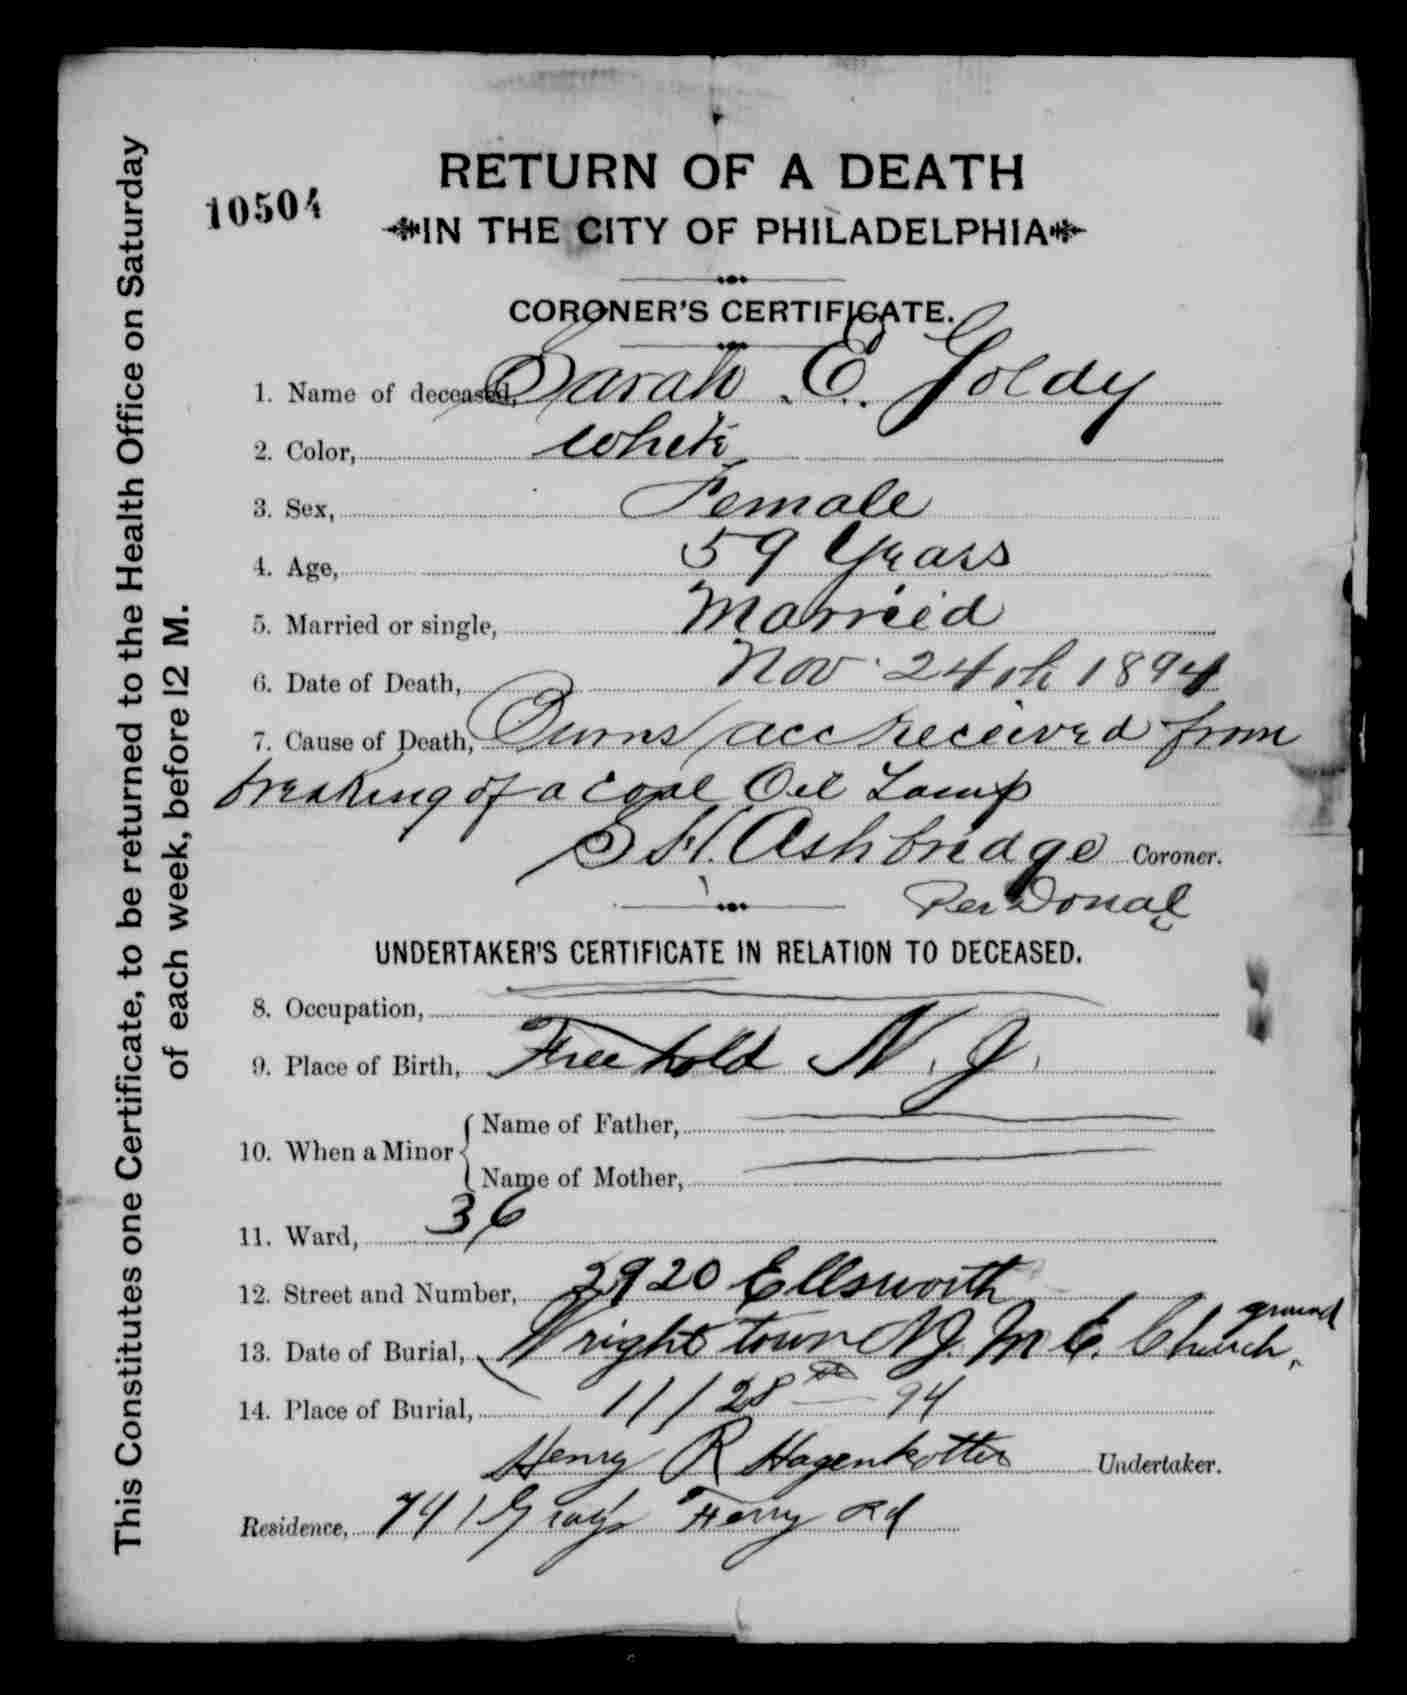 10504
RETURN OF A DEATH
IN THE CITY OF PHILADELPHIA
CORONER'S CERTIFICATE.
1. Name of deceased, Sarah E. Goldy
2. Color, White
3. Sex, Female
4. Age, 59 Years
5. Married or single, Married
6. Date of Death, Nov 24th 1894
7. Cause of Death, Burns acc received from
breaking of a Coal Oil Lamp
S H. Ashbridge Coroner.
Per Donal
UNDERTAKER'S CERTIFICATE IN RELATION TO DECEASED.
8. Occupation,
9. Place of Birth, Freehold N. J.
10. When a Minor
Name of Father,
Name of Mother,
11. Ward, 36
12. Street and Number, 2920 Ellsworth
13. Date of Burial, Wrightstown N.J. M E. Church, ground
14. Place of Burial, 11/28th 94
Henry R Hagenkotter Undertaker.
Residence, 741 Gray's Ferry Rd
This Constitutes one Certificate, to be returned to the Health Office on Saturday
of each week, before 12 M.